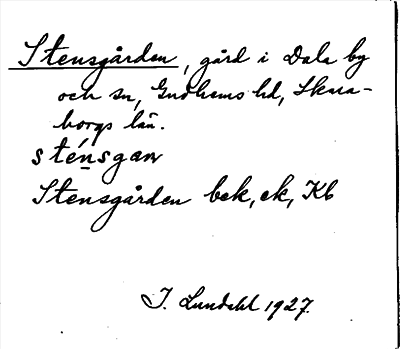 Stensgården, gård i Dala by
och sn, Gudhems hd, Skara-
borgs län.
sténsgan
Stensgården bek, ek, Kb
I. Lundahl 1927.